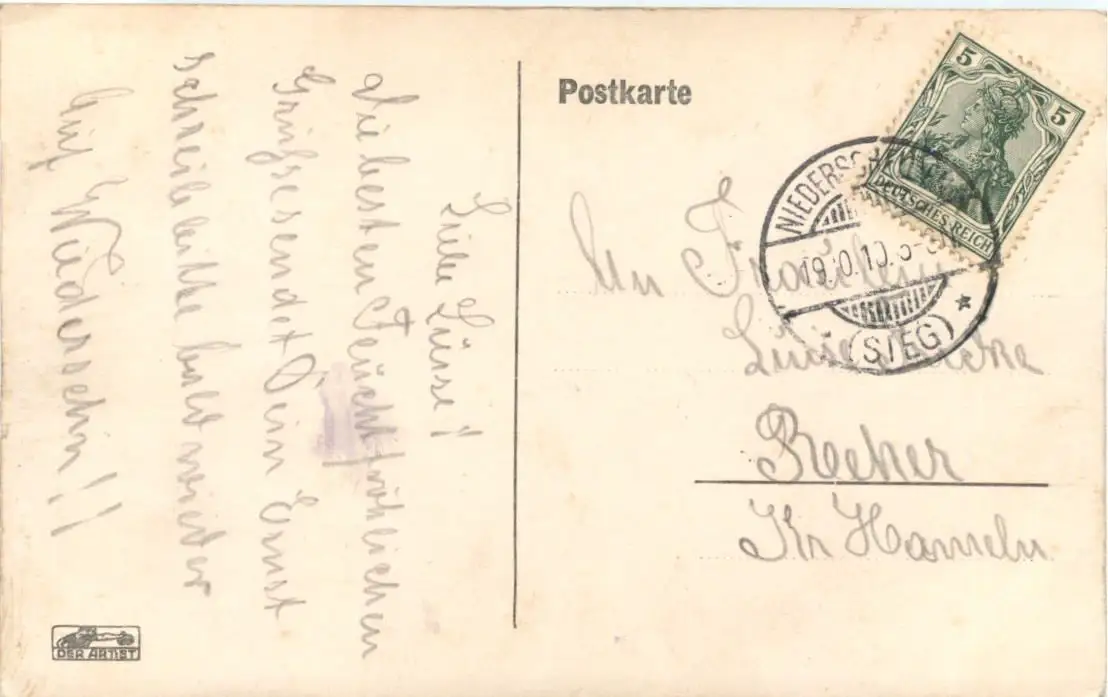 Liebe Luise!
Die besten Feuchtfröhlichen
Grüsse sendet Dein Ernst
schreibe bitte bald wieder
Auf Wiedersehn!!
DER ARTIST
Postkarte
5 5
DEUTSCHES REICH
NIEDERSCH
19. 10. 5-
(SIEG)
*
An Fräulein
Luise
Recher
Kr Hameln